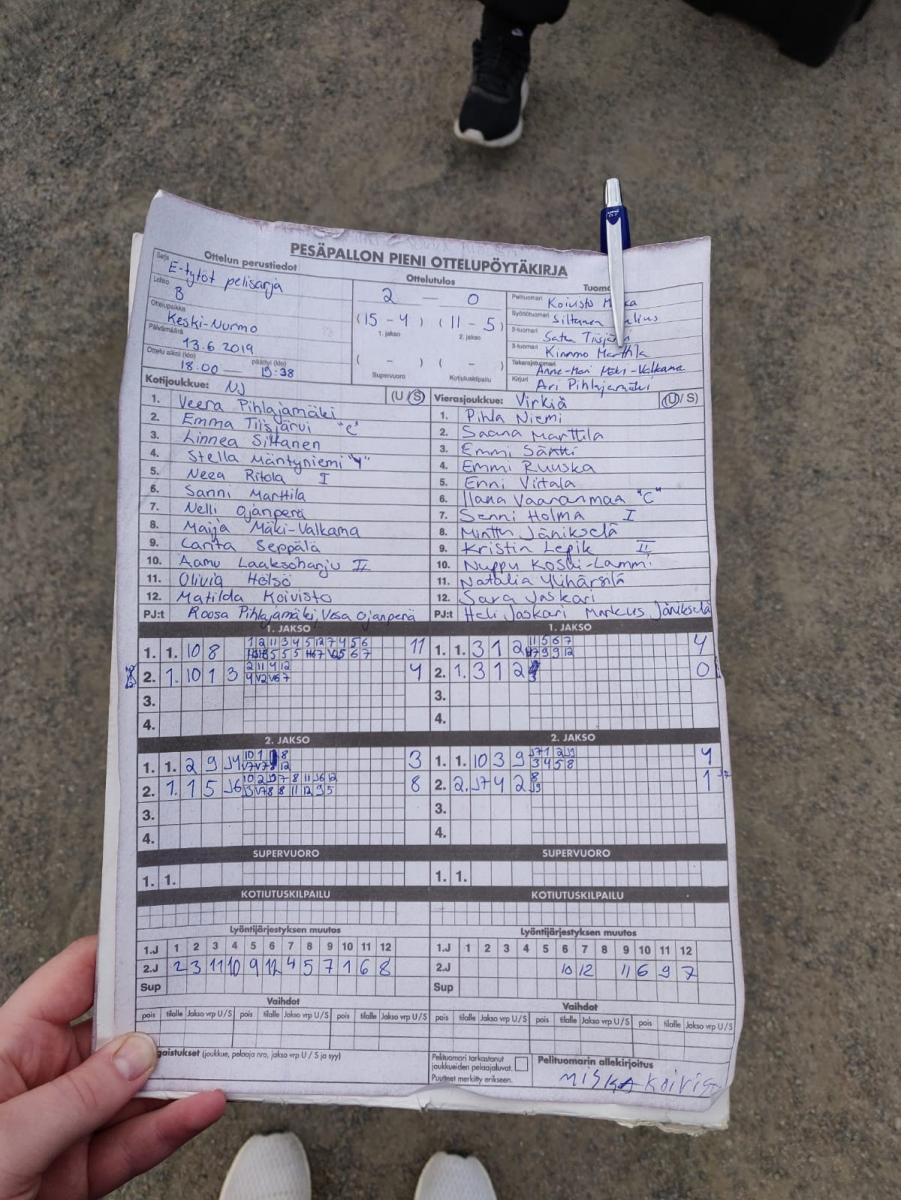 PESÄPALLON PIENI OTTELUPÖYTÄKIRJA
Ottelun perustiedot
Sarja E-tytöt pelisarja
Lohko B
Ottelupaikka Keski-Nurmo
Päivämäärä 13.6 2019
Ottelu alkoi (klo) 18.00 — päättyi (klo) 19:38
Ottelutulos
2 — 0
(15 - 4) (11 - 5)
1. jakso 2. jakso
( - ) ( - )
Supervuoro Kotiutuskilpailu
Pelituomari Koivisto
Syöttötuomari Siltanen
2-tuomari Satu
3-tuomari Kimmo Marttila
Takarajatuomari Anne-Mari Mäki-Valkama
Kirjuri Ari Pihlajamäki
Kotijoukkue: NJ (U/S)
1. Veera Pihlajamäki
2. Emma Tiisjärvi "C"
3. Linnea Siltanen
4. Stella Mäntyniemi
5. Neea Ritola I
6. Sanni Marttila
7. Nelli Ojanperä
8. Maija Mäki-Valkama
9. Carita Seppälä
10. Aamu Laaksoharju II
11. Olivia Hölsö
12. Matilda Koivisto
PJ:t Roosa Pihlajamäki, Vesa Ojanperä
Vierasjoukkue: Virkiä (U/S)
1. Pihla Niemi
2. Saana Marttila
3. Emmi Säntti
4. Emmi Ruuska
5. Enni Virtala
6. Ilana Vaaranmaa "C"
7. Senni Holma I
8. Minttu Jänikselä
9. Kristin Lepik II
10. Nuppu Koski-Lammi
11. Natalia Ylihärsilä
12. Sara Jaskari
PJ:t Heli Jaskari Markus Jänikselä
1. JAKSO
1. 1. 10 8 11
2. 1. 10 1 3 4
3.
4.
1. JAKSO
1. 1. 3 1 2 4
2. 1. 3 1 2 0
3.
4.
2. JAKSO
1. 1. 2 9 J4 3
2. 1. 1 5 J6 8
3.
4.
2. JAKSO
1. 1. 10 3 9 4
2. 2. J7 4 2 1
3.
4.
SUPERVUORO
1. 1.
SUPERVUORO
1. 1.
KOTIUTUSKILPAILU
KOTIUTUSKILPAILU
Lyöntijärjestyksen muutos
1.J 1 2 3 4 5 6 7 8 9 10 11 12
2.J 2 3 11 10 9 12 4 5 7 1 6 8
Sup
Lyöntijärjestyksen muutos
1.J 1 2 3 4 5 6 7 8 9 10 11 12
2.J 10 12 11 6 9 7
Sup
Vaihdot
pois tilalle Jakso vrp U/S pois tilalle Jakso vrp U/S pois tilalle Jakso vrp U/S
Vaihdot
pois tilalle Jakso vrp U/S pois tilalle Jakso vrp U/S pois tilalle Jakso vrp U/S
(joukkue, pelaaja nro, jakso vrp U / S ja syy)
Pelituomari tarkastanut
joukkueiden pelaajaluvat.
Puutteet merkitty erikseen.
Pelituomarin allekirjoitus
MISKA KOIVIS